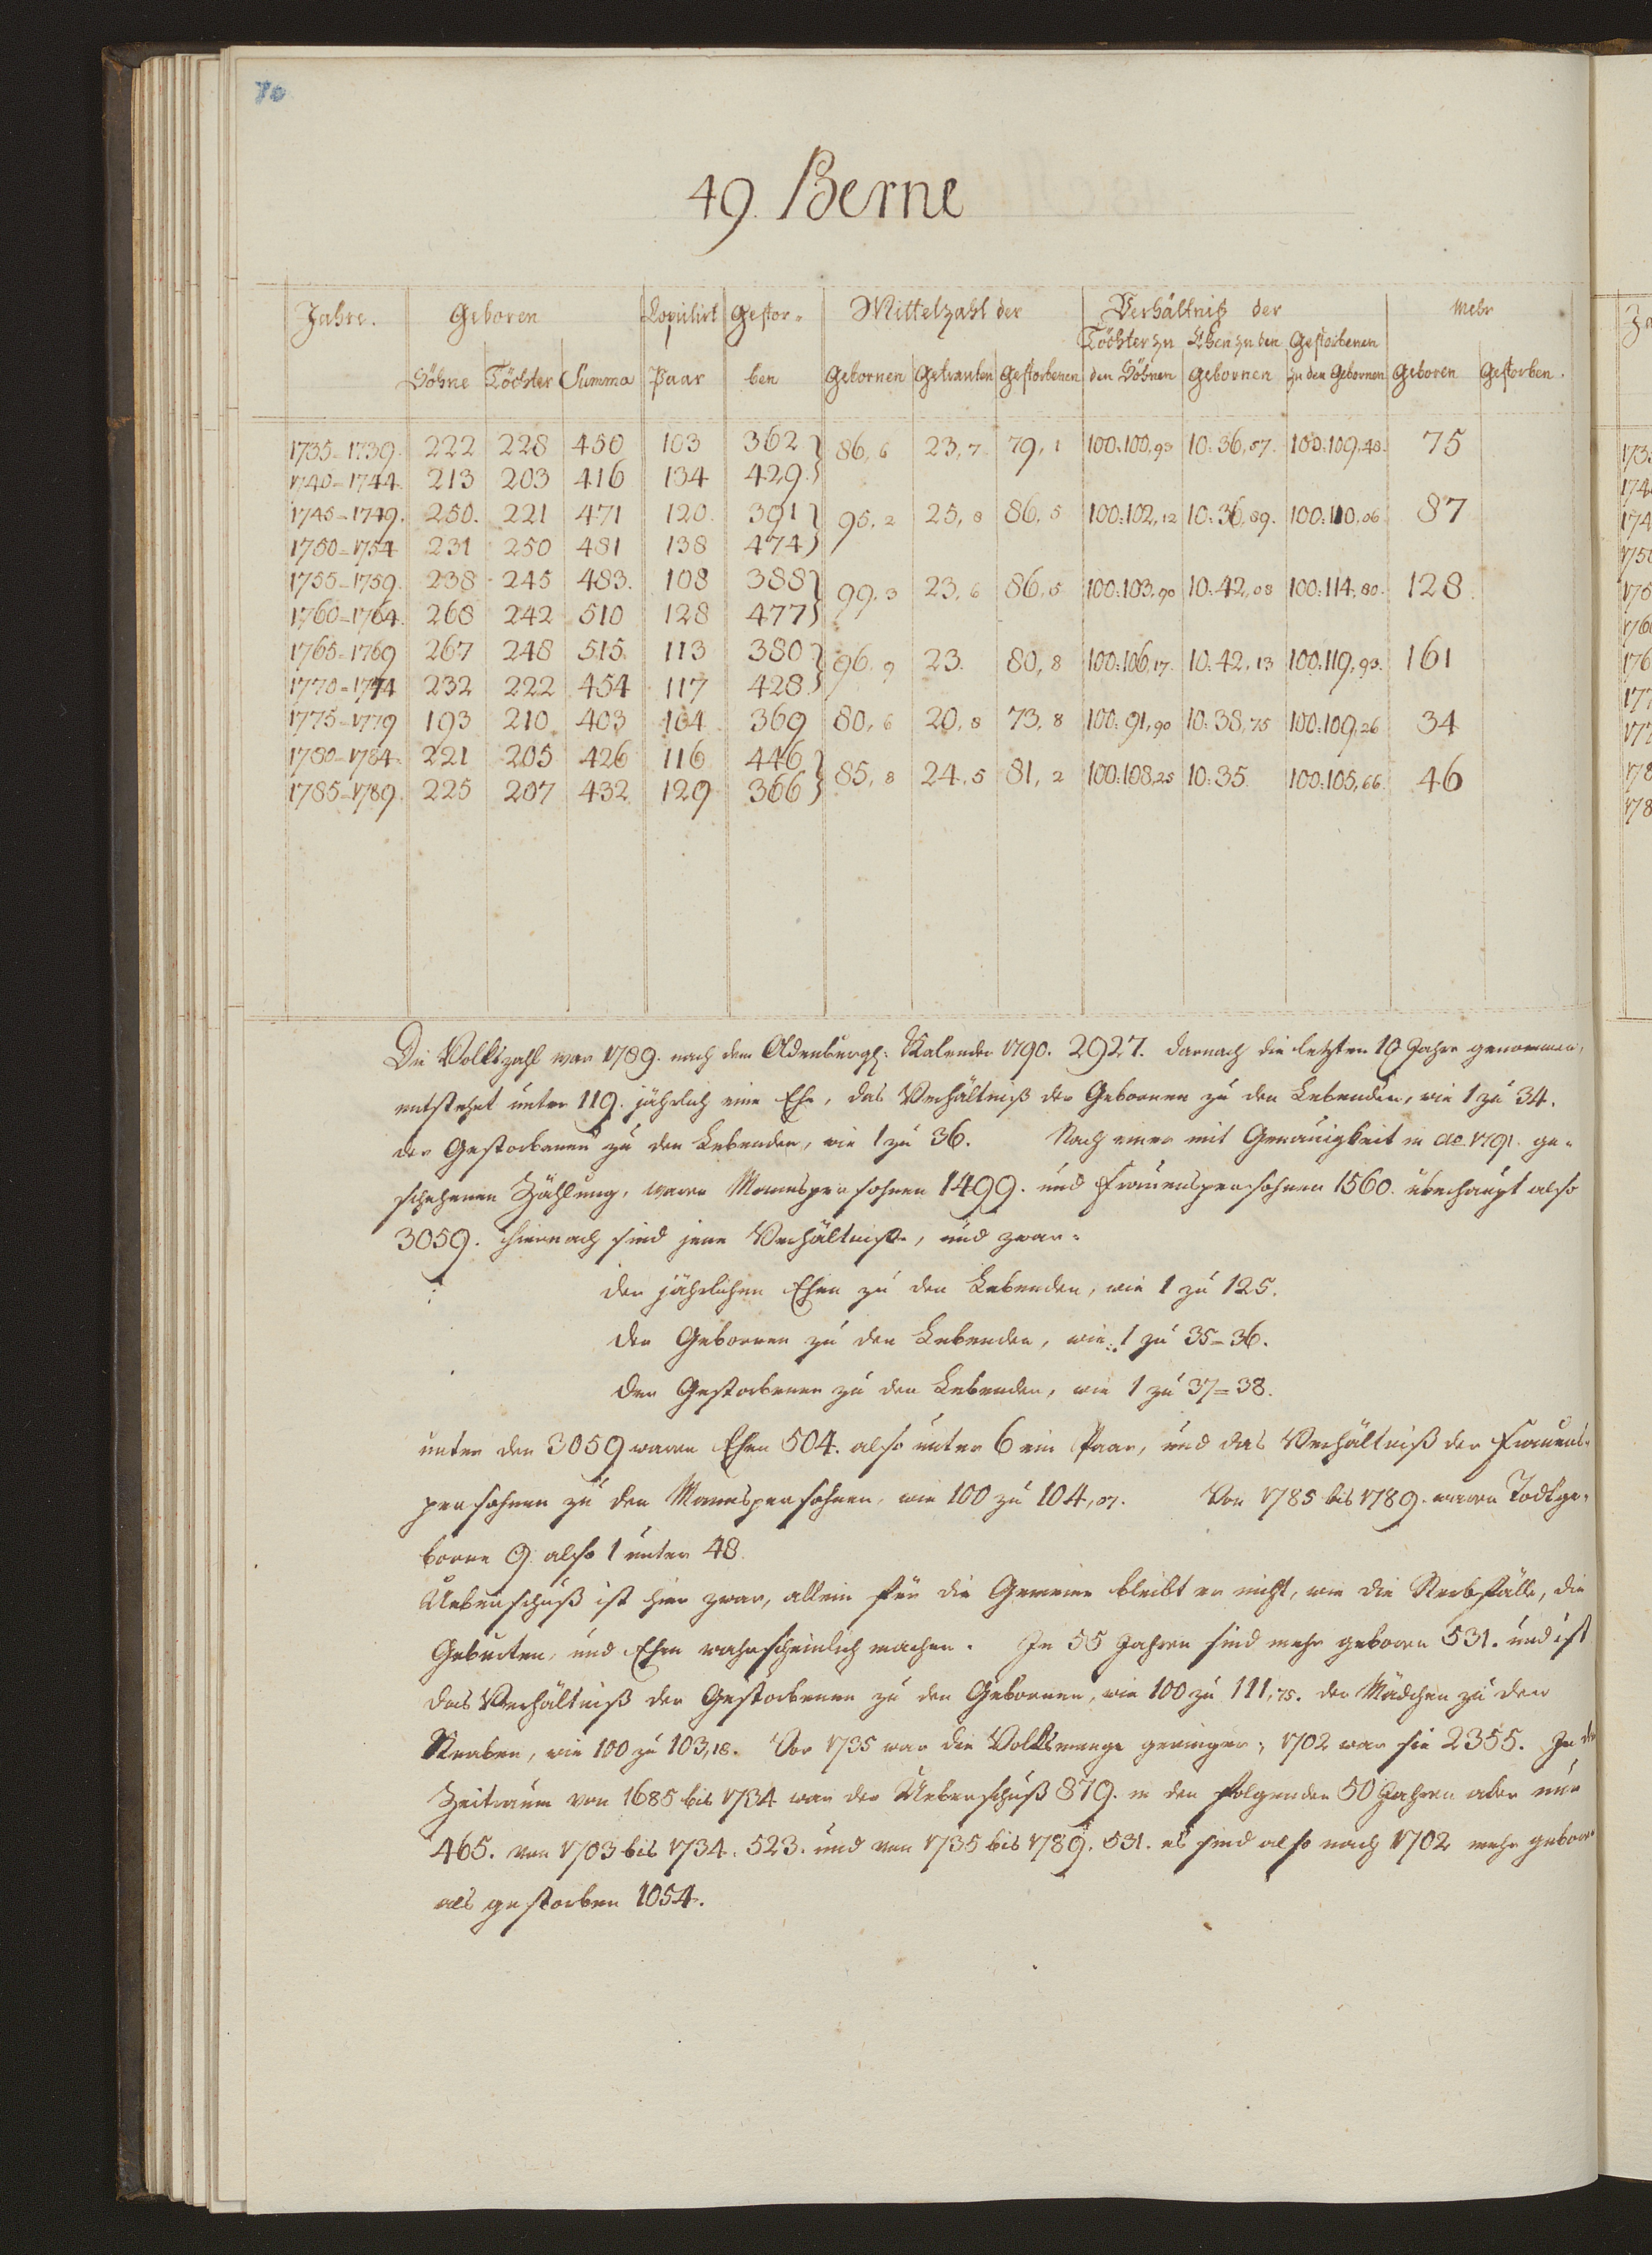 70
49. Berne
Jahre. Geboren Copulirt Gestor- Mittelzahl der Verhältniß der Mehr
Töchter zu Ehen zu den Gestorbenen
Söhne Töchter Summa Paar ben Gebornen Getrauten Gestorbenen den Söhnen Gebornen zu den Gebornen Geboren Gestorben.
1735-1739. 222 228 450 103 362 86,6 23,7 79,1 100:100,93 10:36,57. 100:109,48. 75
1740-1744. 213 203 416 134 429.
1745-1749. 250. 221 471 120. 391 95,2 25,8 86,5 100:102,12 10:36,89. 100:110,06 87
1750-1754 231 250 481 138 474
1755-1759. 238 245 483. 108 388 99,3 23,6 86,5 100:103,90 10:42,08 100:114,80. 128
1760-1764. 268 242 510 128 477
1765-1769 267 248 515 113 380 96,9 23. 80,8 100:106,17. 10:42,13 100:119,93. 161
1770-1774 232 222 454 117 428.
1775-1779 193 210 403 104 369 80,6 20,8 73,8 100:91,90 10:38,75 100:109,26 34
1780-1784. 221 205 426 116 446 85,8 24,5 81,2 100:108,25 10:35. 100:105,66 46
1785-1789. 225 207 432 129 366
Die Volkszahl war 1789. nach dem Oldenburgl: Kalender 1790. 2927. darnach die letzten 10 Jahre genommen,
entstehet unter 119. jährlich eine Ehe, das Verhältniß der Gebornen zu den Lebenden, wie 1 zu 34.
der Gestorbenen zu den Lebenden, wie 1 zu 36. Nach einer mit Genauigkeit in ao 1791. ge-
schehenen Zählung, waren Mannspersohnen 1499. und Frauenspersohnen 1560. überhaupt also
3059. hiernach sind jene Verhältniße, und zwar:
der jährlichen Ehen zu den Lebenden, wie 1 zu 125.
der Gebornen zu den Lebenden, wie 1 zu 35-36.
der Gestorbenen zu den Lebenden, wie 1 zu 37-38.
unter den 3059 waren Ehen 504. also unter 6 ein Paar, und das Verhältniß der Frauens-
persohnen zu den Mannspersohnen, wie 100 zu 104,07. Von 1785 bis 1789. waren Todtge-
borne 9. also 1 unter 48.
Ueberschuß ist hier zwar, allein für die Gemeine bleibt er nicht, wie die Sterbfälle, die
Geburten, und Ehen wahrscheinlich machen. In 55 Jahren sind mehr geboren 531. und ist
das Verhältniß der Gestorbenen zu den Gebornen, wie 100 zu 111,75. der Mädchen zu den
Knaben, wie 100 zu 103,18. Vor 1735 war die Volksmenge geringer; 1702 war sie 2355. In
Zeitraum von 1685 bis 1734 war der Ueberschuß 879. in den folgenden 50 Jahren aber nur
465. von 1703 bis 1734. 523. und von 1735 bis 1789. 531. es sind also nach 1702 mehr geboren
als gestorben 1054.